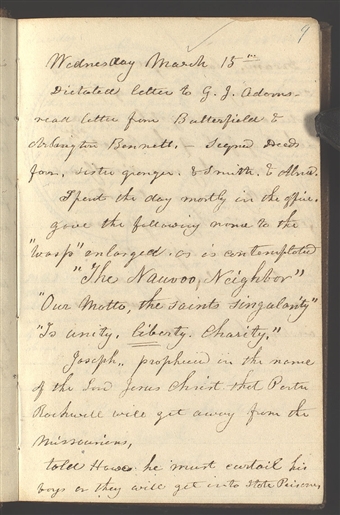 9
Wednesday March 15th
Dictated letter to G. J. Adams-
read letter from Butterfield &
Arlington Bennett. - Signed Deeds
for, sister granger. & Smith. &
Spent the day mostly in the office.
gave the following name to the
"Wasp" enlarged. as is contemplated
"The Nauvoo, Neighbor"
"Our Motto, the saints singularity"
"Is unity, liberty. Charity."
Joseph,, prophecid in the name
of the Lord Jesus Christ that Porter
Rockwell will get away from the
missourians,
told he must curtail his
boys or they will get into State Prison